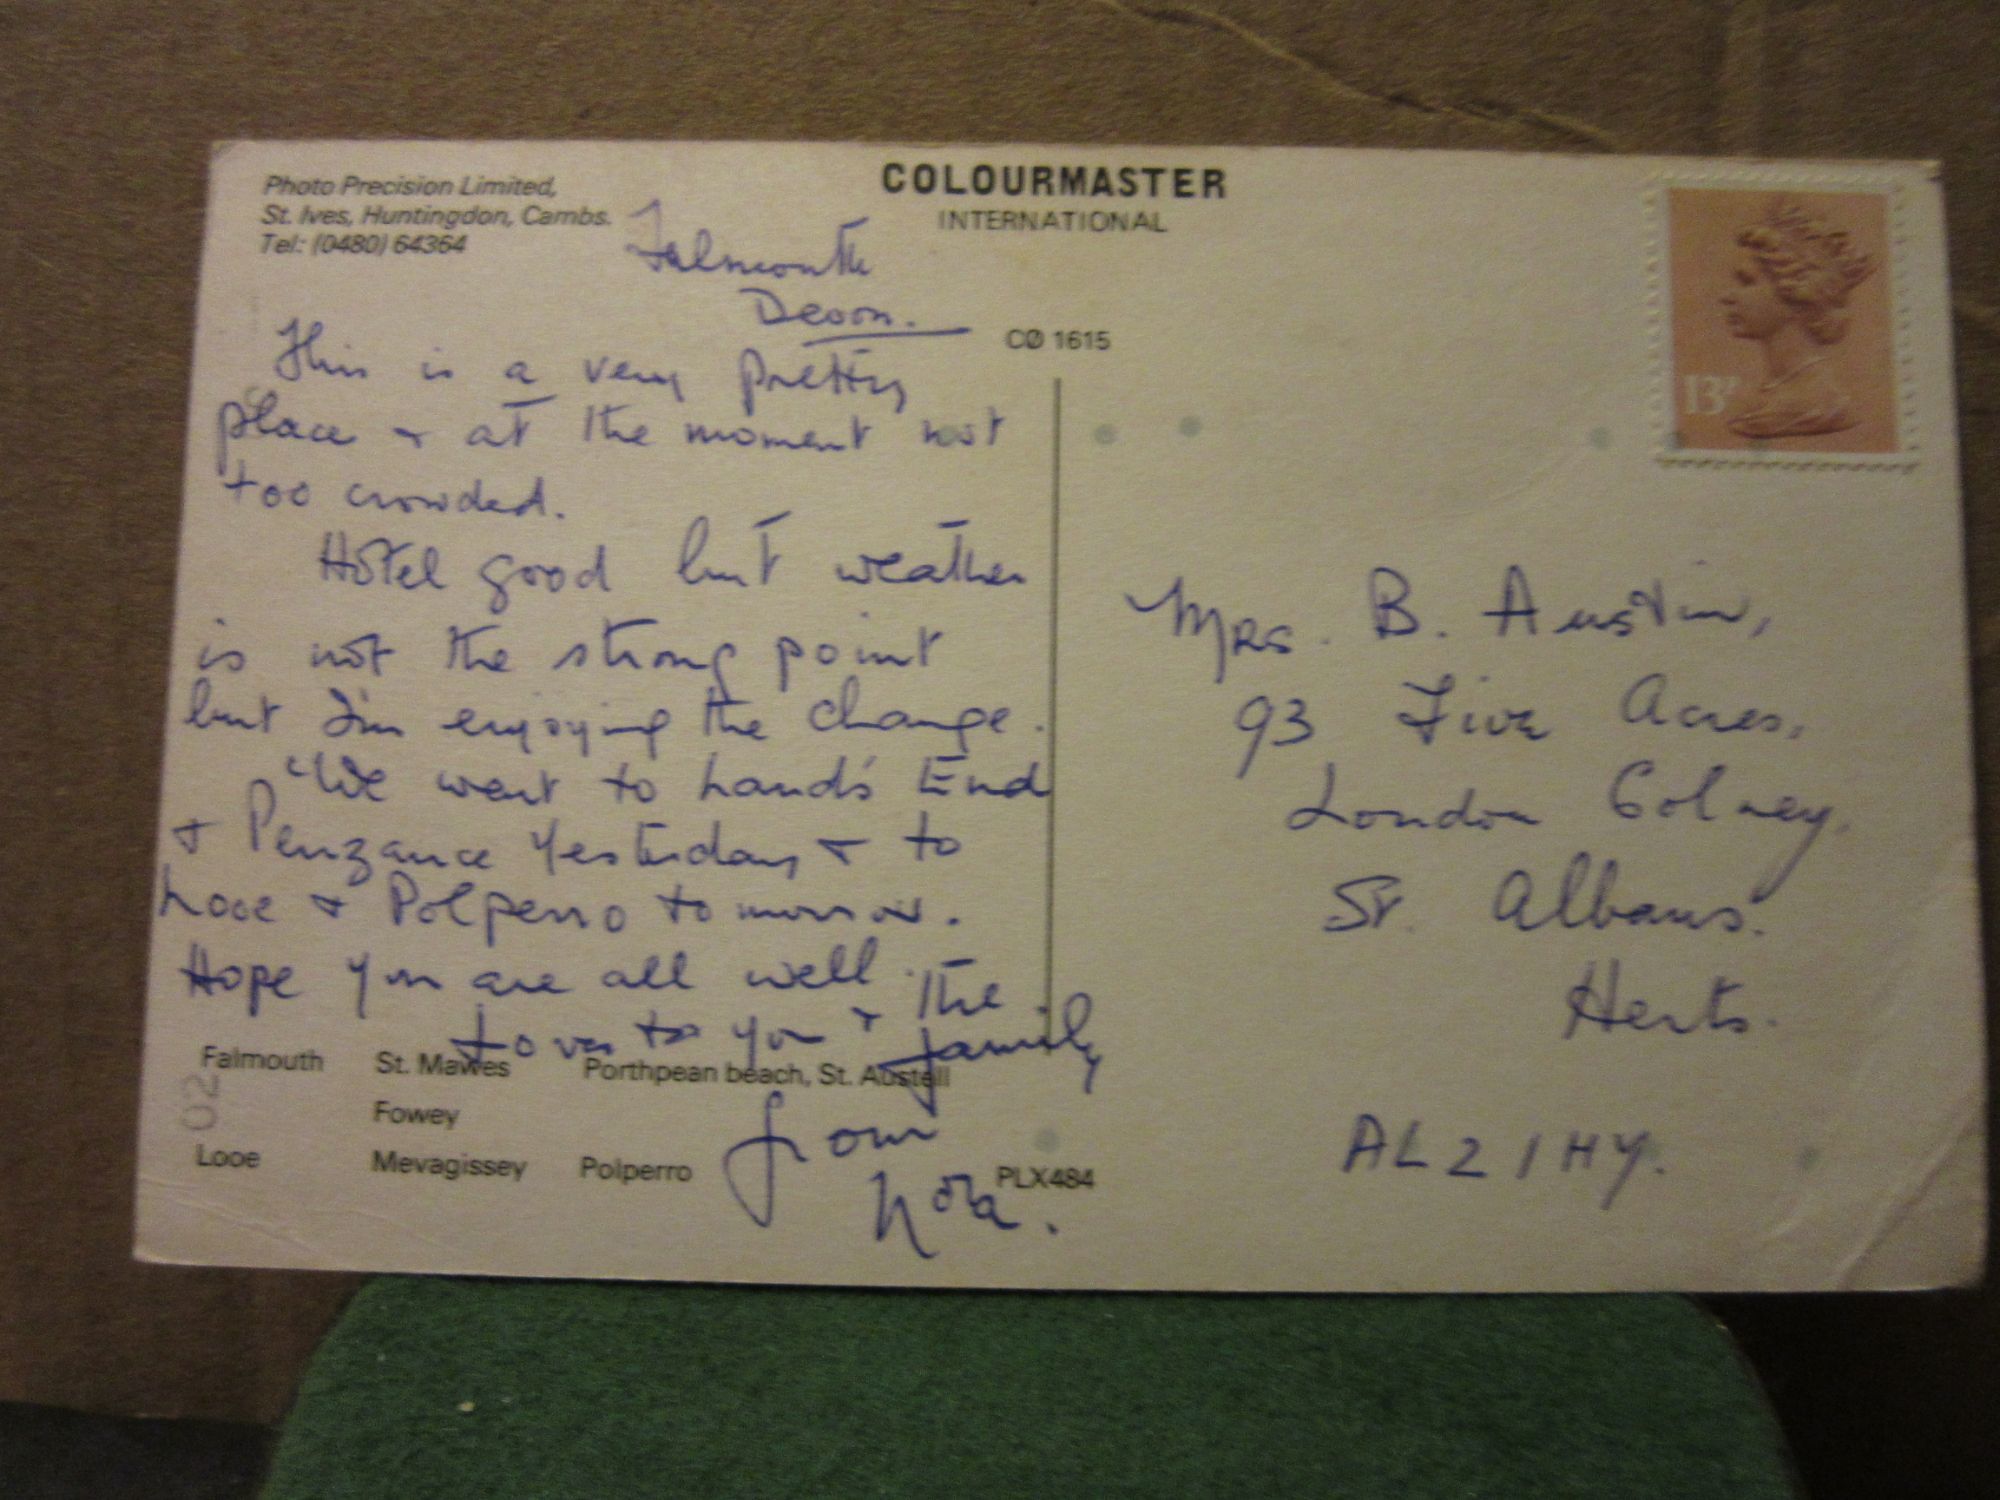 Photo Precision Limited,
St. Ives, Huntingdon, Cambs.
Tel: (0480) 64364
COLOURMASTER
INTERNATIONAL
13P
CØ 1615
Falmouth
Devon.
This is a very pretty
place + at the moment not
too crowded.
Hotel good but weather
is not the strong point
but I'm enjoying the change.
We went to Land's End
+ Penzance Yesterday + to
Looe + Polperro tomorrow.
Hope you are all well.
Love to you + the
family
from
Nora.
Mrs. B. Austin,
93 Five Acres,
London Colney,
St. Albans.
Herts.
AL2 1HY.
Falmouth St. Mawes Porthpean beach, St. Austell
Fowey
Looe Mevagissey Polperro
PLX484
02